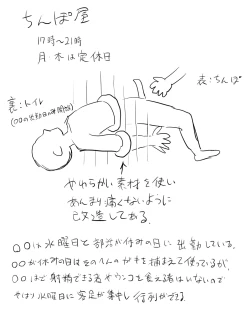 ちんぽ屋
17時〜21時
月・木は定休日
表:ちんぽ
裏:トイレ
やわらかい素材を使い
あんまり痛くないように
改造してある.
〇〇は水曜日と部活が休みの日に出勤している.
〇〇が休みの日はその人の
捕まえて使っているが,
〇〇ほど射精できる者やウンコを食える者はいないので
やはり水曜日に客足が集中し行列ができる.